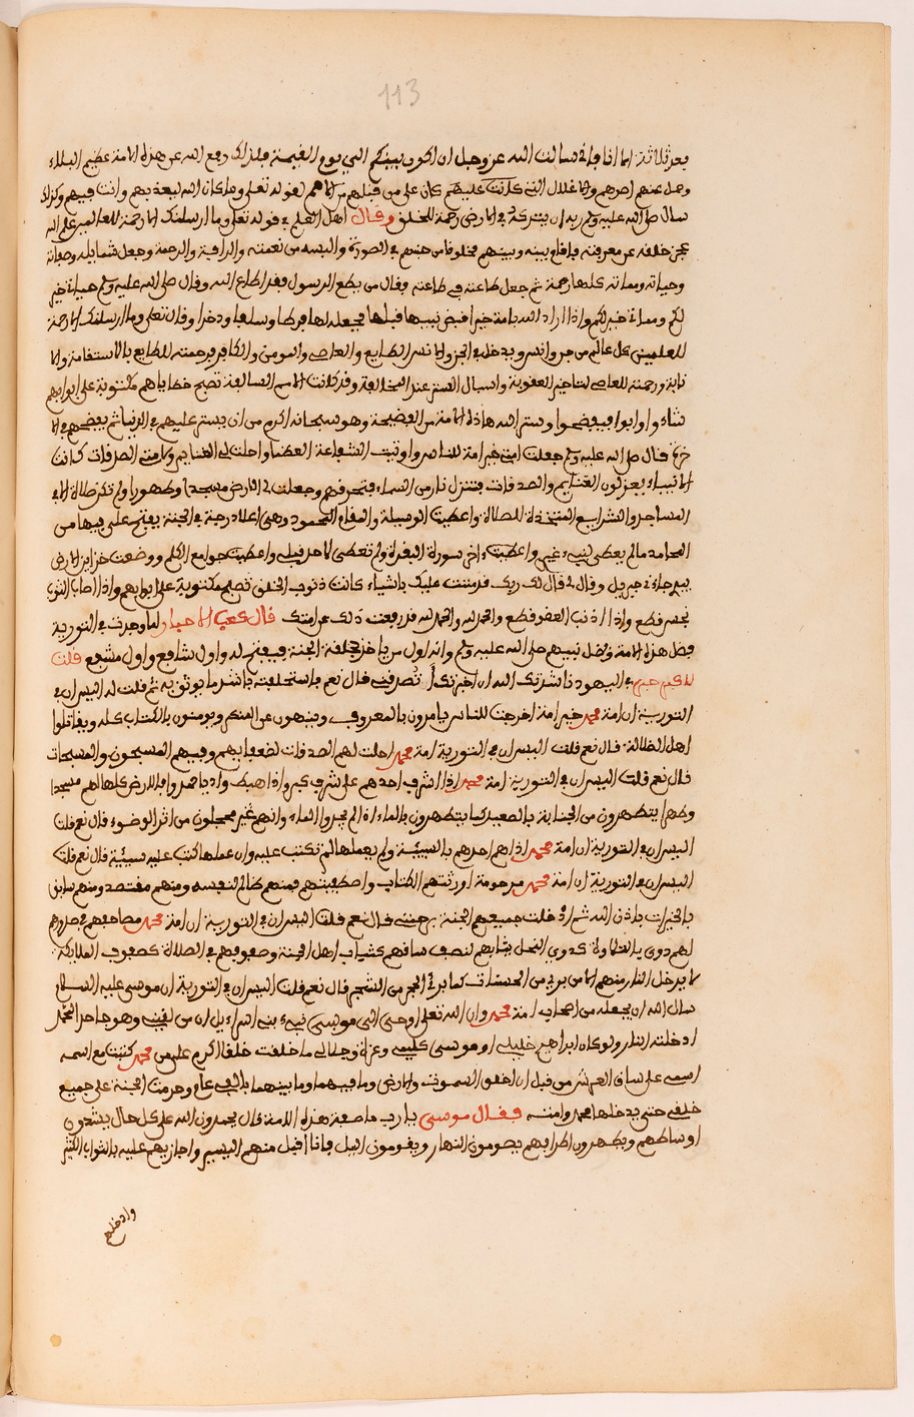 113
بعد ثلاثة اما انا فاني سالت الله عز وجل ان اكون بينكم الى يوم القيمة فلذلك رفع الله عن هذه الامة عظيم البلاء
وحل عنهم اصرهم والاغلال التي كانت عليهم كان على من قبلهم من الامم لقوله تعلى وما كان الله ليعذبهم وانت فيهم وكذلك
سال صلى الله عليه وسلم ربه ان يتركه في الارض رحمة للخلق وقال اهل العلم في قوله تعلى وما ارسلنك الا رحمة للعالمين على الله
عجز خلقه عن معرفته فاقام بينه وبينهم مخلوقا من جنسهم في الصورة والبسه من نعمته والرافة والرحمة وجعل شمايله وصفاته
وحياته ومماته كلها رحمة ثم جعل طاعته في طاعته فقال من يطع الرسول فقد اطاع الله وقال صلى الله عليه وسلم حياتي خير
لكم ومماتي خير لكم واذا اراد الله بامة خيرا قبض نبيها قبلها فجعله لها فرطا وسلفا وذخرا وقال تعلى وما ارسلنك الا رحمة
للعلمين كل عالم من جن وانس ويدخل في الجن والانس الطايع والعاصي والمومن والكافر فرحمته للطايع بالاستقامة والا
نابة ورحمته للعاصي لتاخير العقوبة واسبال الستر عند المخالفة وقد كانت الامم السالفة تصبح خطاياهم مكتوبة على ابوابهم
شاءوا او ابوا فيفضحوا وستر الله هاذه الامة من الفضيحة وهو سبحانه اكرم من ان يستر عليهم في الدنيا ثم يفضحهم في الا
خرة قال صلى الله عليه وسلم جعلت امتي خير امة للناس واوتيت الشفاعة العظما واحلت لي الغنايم ولامتي الصدقات كانت
الانبياء يعزلون الغنايم والصدقات فتنزل نار من السماء فتحرقهم وجعلت لي الارض مسجدا وطهورا ولم تكن صلاة الا في
المساجد والشرايع المتخذة للصلاة واعطيت الوسيلة والمقام المحمود وهي اعلا درجة في الجنة يفتح علي فيها من
المحامد مالم يعطى لنبيء غيري واعطيت ءاخر سورة البقرة ولم تعطى لاحد قبلي واعطيت جوامع الكلم ووضعت خزاين الارض
بيدي جاءني جبريل وقال لي قال لك ربك قد مننت عليك باشياء كانت ذنوب الخلق تصبح مكتوبة على ابوابهم واذا اصاب الثوب
نجس قطع واذا اذنب العضو قطع والحمد لله والحمد لله قد رفعت ذلك عن امتك قال كعب الاحبار لما وجدت في التورية
فضل هذه الامة وفضل نبيهم صلى الله عليه وسلم وانه اول من ياخذ بحلقة الجنة فيفتح له واول شافع واول مشفع قلت
في اليهود ناشدتك الله ان اخبرتك أ تصدقني قال نعم فاستحلفته باشد ما يوثق به ثم قلت له اليس ان في
التورية ان امة محمد خير امة اخرجت للناس يامرون بالمعروف وينهون عن المنكر ويومنون بالكتاب كله ويقاتلوا
اهل الضلالة قال نعم قلت اليس ان في التورية امة محمد احلت لهم الصدقات لضعفايهم وفيهم المسبحون والمسبحات
قال نعم قلت اليس ان في التورية امة محمد اذا اشرف احدهم على شرف كبر واذا هبط واديا حمد والارض كلها لهم مسجدا
وطهرا يتطهرون من الجنابة بالصعيد كما يتطهرون بالماء اذا لم يجدوا الماء وانهم غير محجلون من اثر الوضوء قال نعم قلت
اليس ان في التورية ان امة محمد اذا هم احدهم بالسيئة ولم يعملها لم تكتب عليه وان عملها كتب عليه سيئة قال نعم قلت
اليس ان في التورية ان امة محمد مرحومة اورثتهم الكتاب واصطفيتهم فمنهم ظالم لنفسه ومنهم مقتصد ومنهم سابق
بالخيرات باذن الله ثم ادخلت جميعهم الجنة برحمتي قال نعم قلت اليس ان في التورية ان امة محمد مصاحفهم في صدورهم
لهم دوي بالتلاوة كدوي النحل ثيابهم لنصف سافهم كثياب اهل الجنة وصفوفهم في الصلاة كصفوف الملايكة
لا يدخل النار منهم الا من بري من الحسنات كما بري الحجر من الشجر قال نعم قلت اليس ان في التورية ان موسى عليه السلام
سال الله ان يجعله من اصحاب امة محمد وان الله تعلى اوحى الى موسى نبيء بني اسراءيل ان من لقيني وهو جاحد لمحمد
ادخلته النار ولو كان ابراهيم خليلي او موسى كليمي وعزتي وجلالي ما خلقت خلقا اكرم علي من محمد كتبت مع اسمه
اسمي على ساق العرش من قبل ان اخلق السموات والارض وما فيهما وما بينهما بالفي عام وحرمت الجنة على جميع
خلقي حتى يدخلها محمد وامته فقال موسى يارب ما صفة هذه الامة قال يحمدون الله على كل حال يشدون
اوساطهم ويطهرون اطرافهم يصومون النهار ويقومون اليل فانا اقبل منهم اليسير واجازيهم عليه بالثواب الكثير
وادخلهم